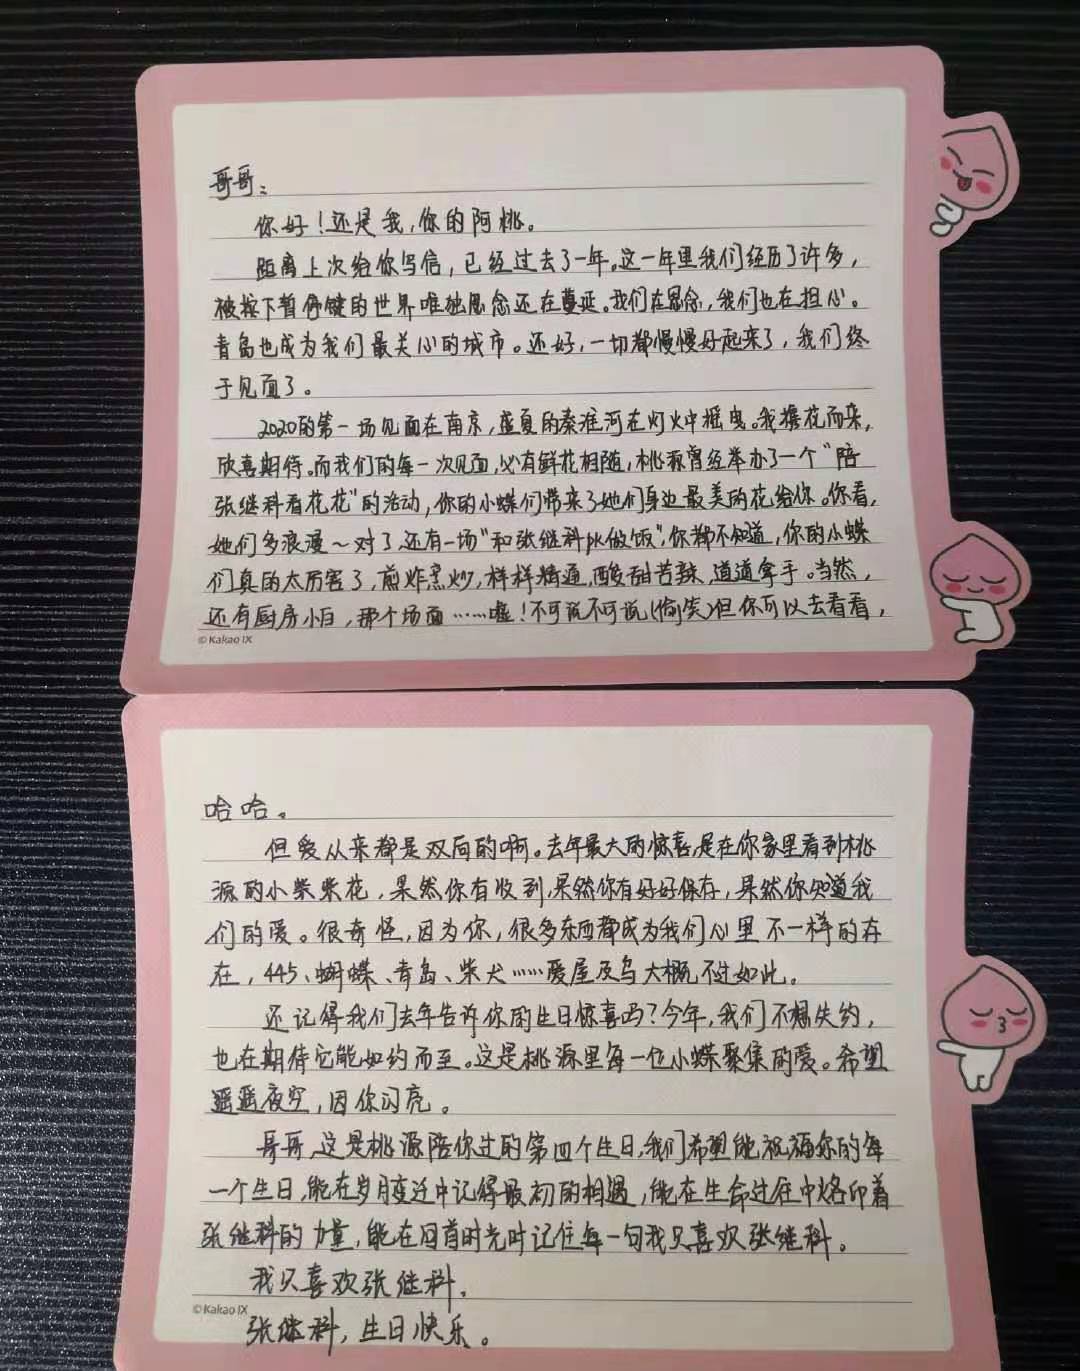 哥哥：
你好！还是我，你的阿桃。
距离上次给你写信，已经过去了一年。这一年里我们经历了许多，
被按下暂停键的世界唯独思念还在蔓延。我们在思念，我们也在担心。
青岛也成为我们最关心的城市。还好，一切都慢慢好起来了，我们终
于见面了。
2020的第一场见面在南京，盛夏的秦淮河在灯火中摇曳。我携花而来，
欣喜期待。而我们的每一次见面，必有鲜花相随，桃源曾经举办了一个“陪
张继科看花花”的活动，你的小蝶们带来了她们身边最美的花给你。你看，
她们多浪漫～对了，还有一场“和张继科pk做饭”，你都不知道，你的小蝶
们真的太厉害了，煎炸烹炒，样样精通，酸甜苦辣，道道拿手。当然，
还有厨房小白，那个场面……嘘！不可说不可说（偷笑）但你可以去看看，
© Kakao IX
哈哈。
但爱从来都是双向的啊。去年最大的惊喜是在你家里看到桃
源的小柴柴花，果然你有收到，果然你有好好保存，果然你知道我
们的爱。很奇怪，因为你，很多东西都成为我们心里不一样的存
在，445、蝴蝶、青岛、柴犬……爱屋及乌大概不过如此。
还记得我们去年告诉你的生日惊喜吗？今年，我们不想失约，
也在期待它能如约而至。这是桃源里每一位小蝶聚集的爱。希望
遥遥夜空，因你闪亮。
哥哥，这是桃源陪你过的第四个生日，我们希望能祝福你的每
一个生日，能在岁月变迁中记得最初的相遇，能在生命过往中烙印着
张继科的力量，能在回首时光时记住每一句我只喜欢张继科。
我只喜欢张继科。
© Kakao IX
张继科，生日快乐。